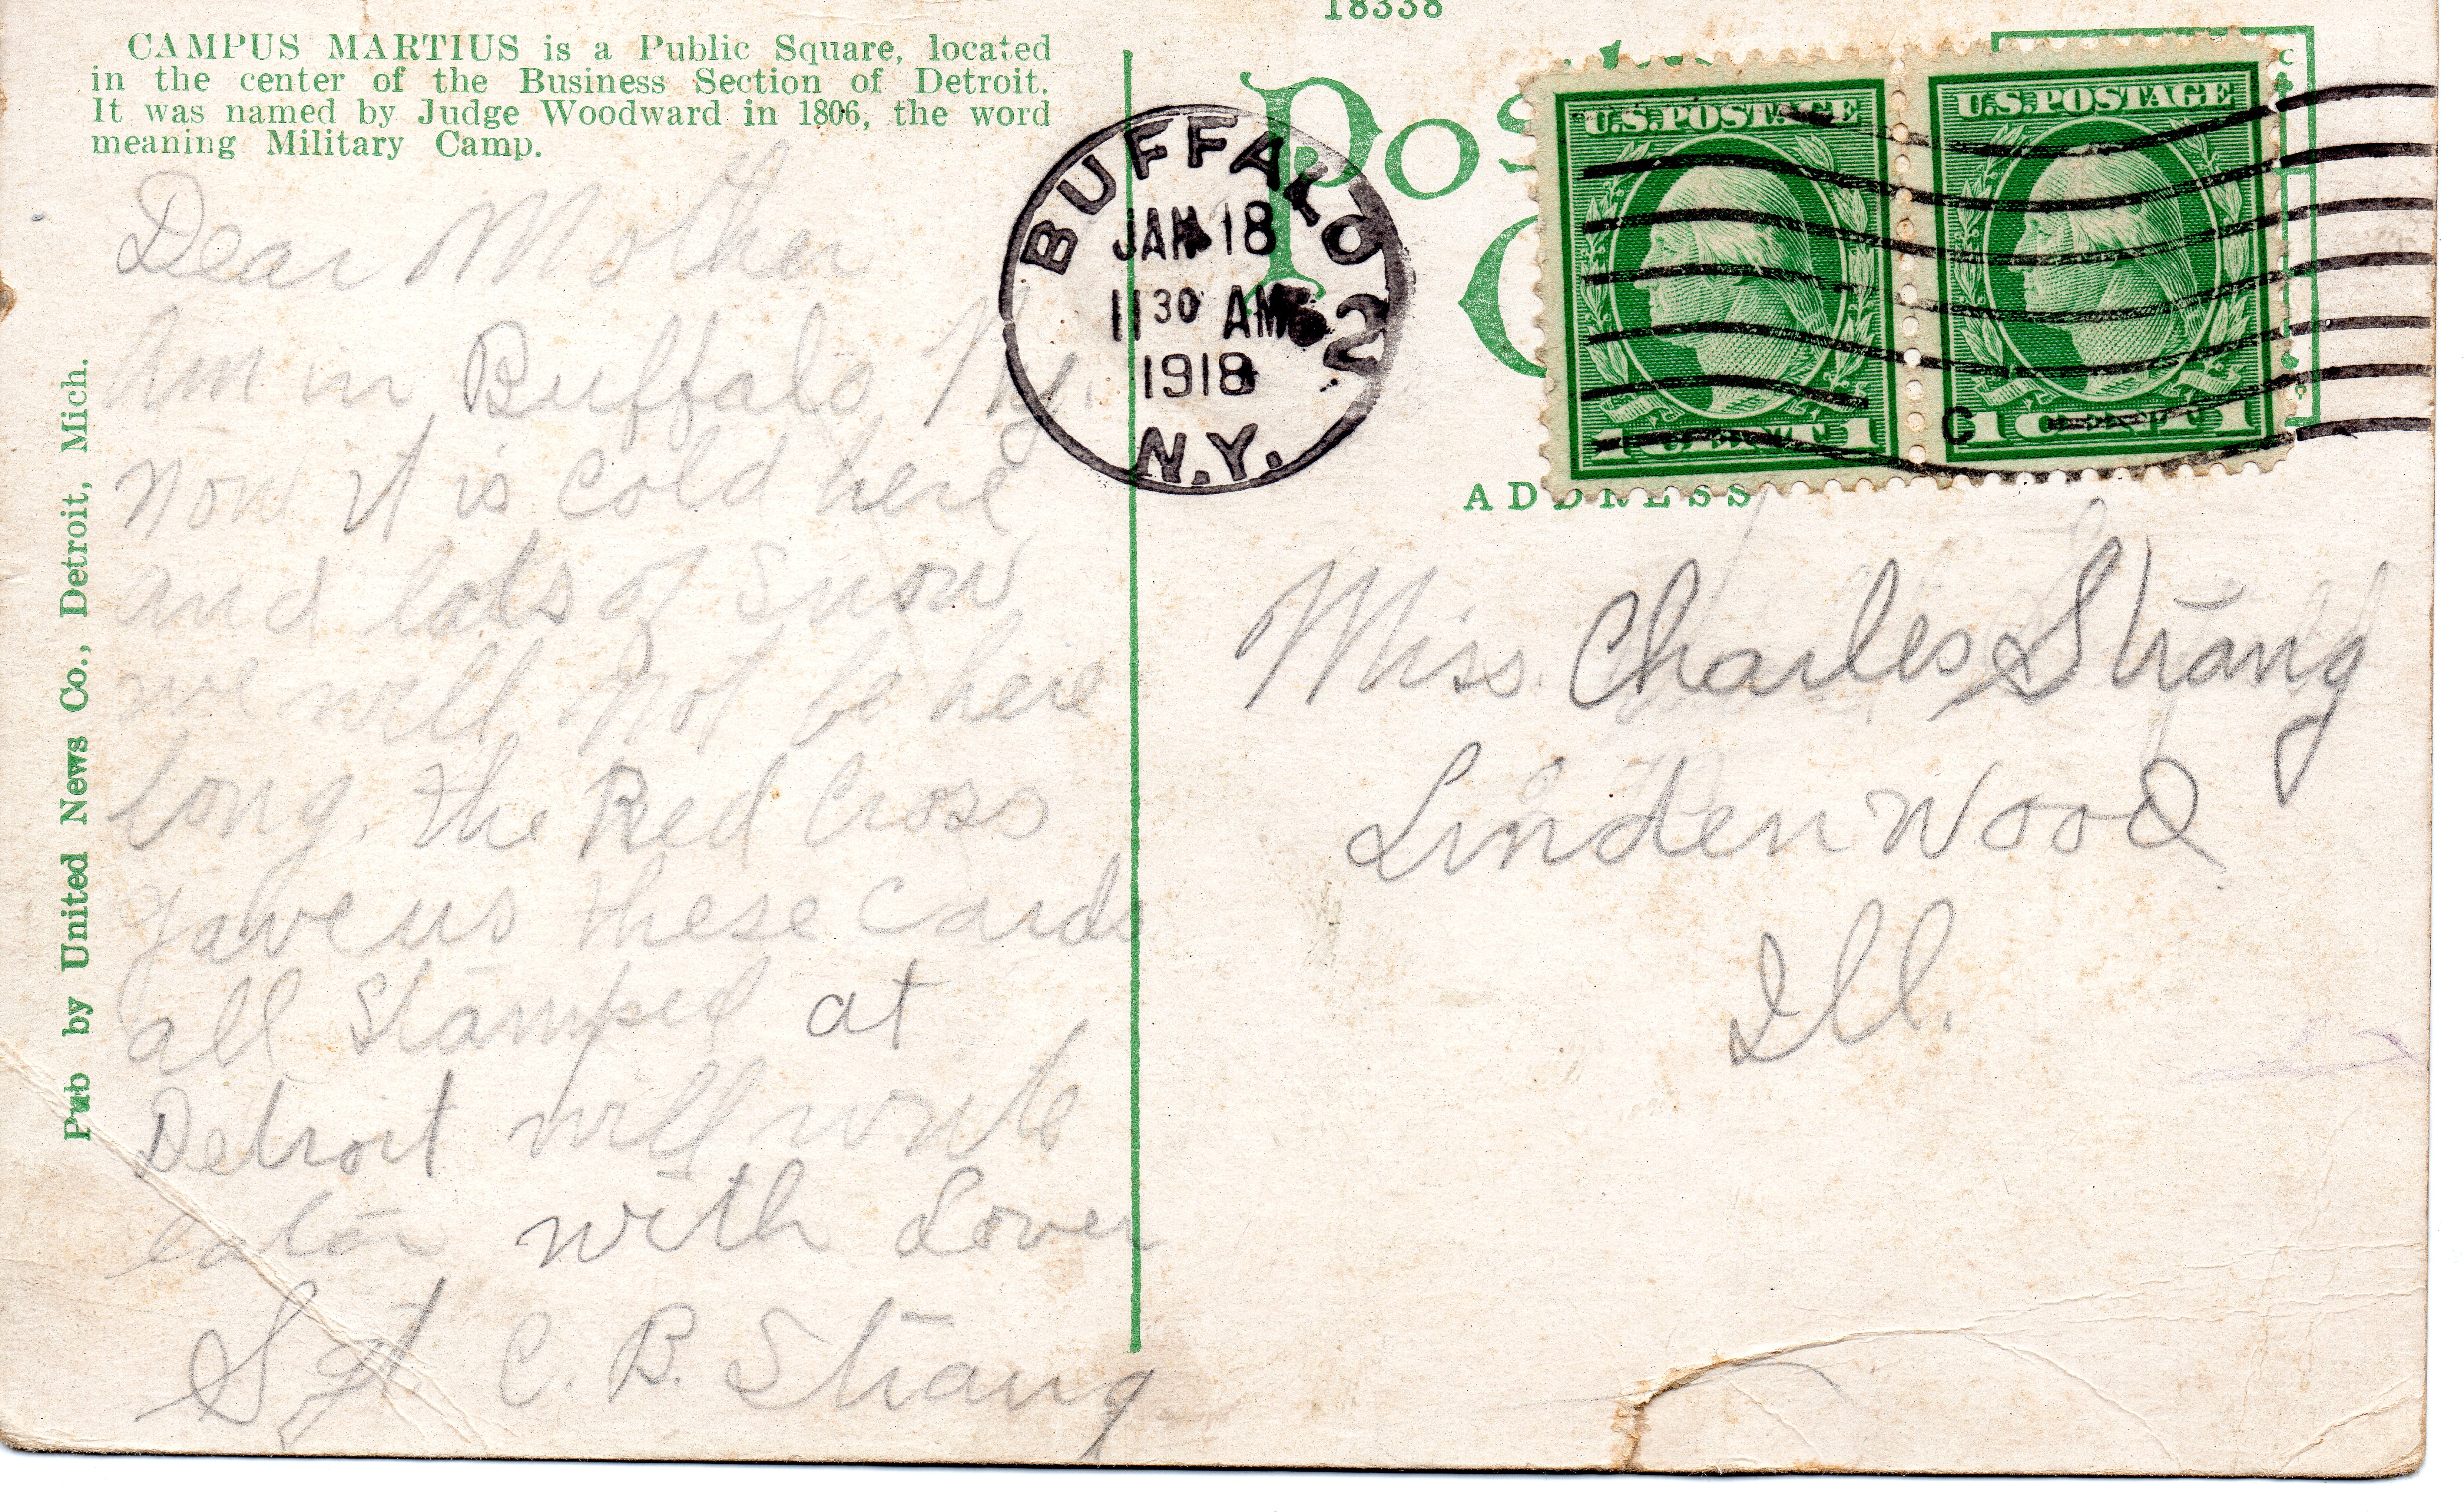 18338
CAMPUS MARTIUS is a Public Square, located
in the center of the Business Section of Detroit.
It was named by Judge Woodward in 1806, the word
meaning Military Camp.
Pub by United News Co., Detroit, Mich.
Dear Mother
Am in Buffalo, Ny.
now it is cold here
and lots of snow
we will not be here
long. the Red Cross
gave us these cards
all stamped at
Detroit will write
with Love
Sgt. C. B. Strang
BUFFALO
JAN 18
11 30 AM
2
1918
N.Y.
POS
U.S. POSTAGE
1 CENT 1
U.S. POSTAGE
1 CENT 1
C
ADDRESS
Miss. Charles Strang
Lindenwood
Ill.